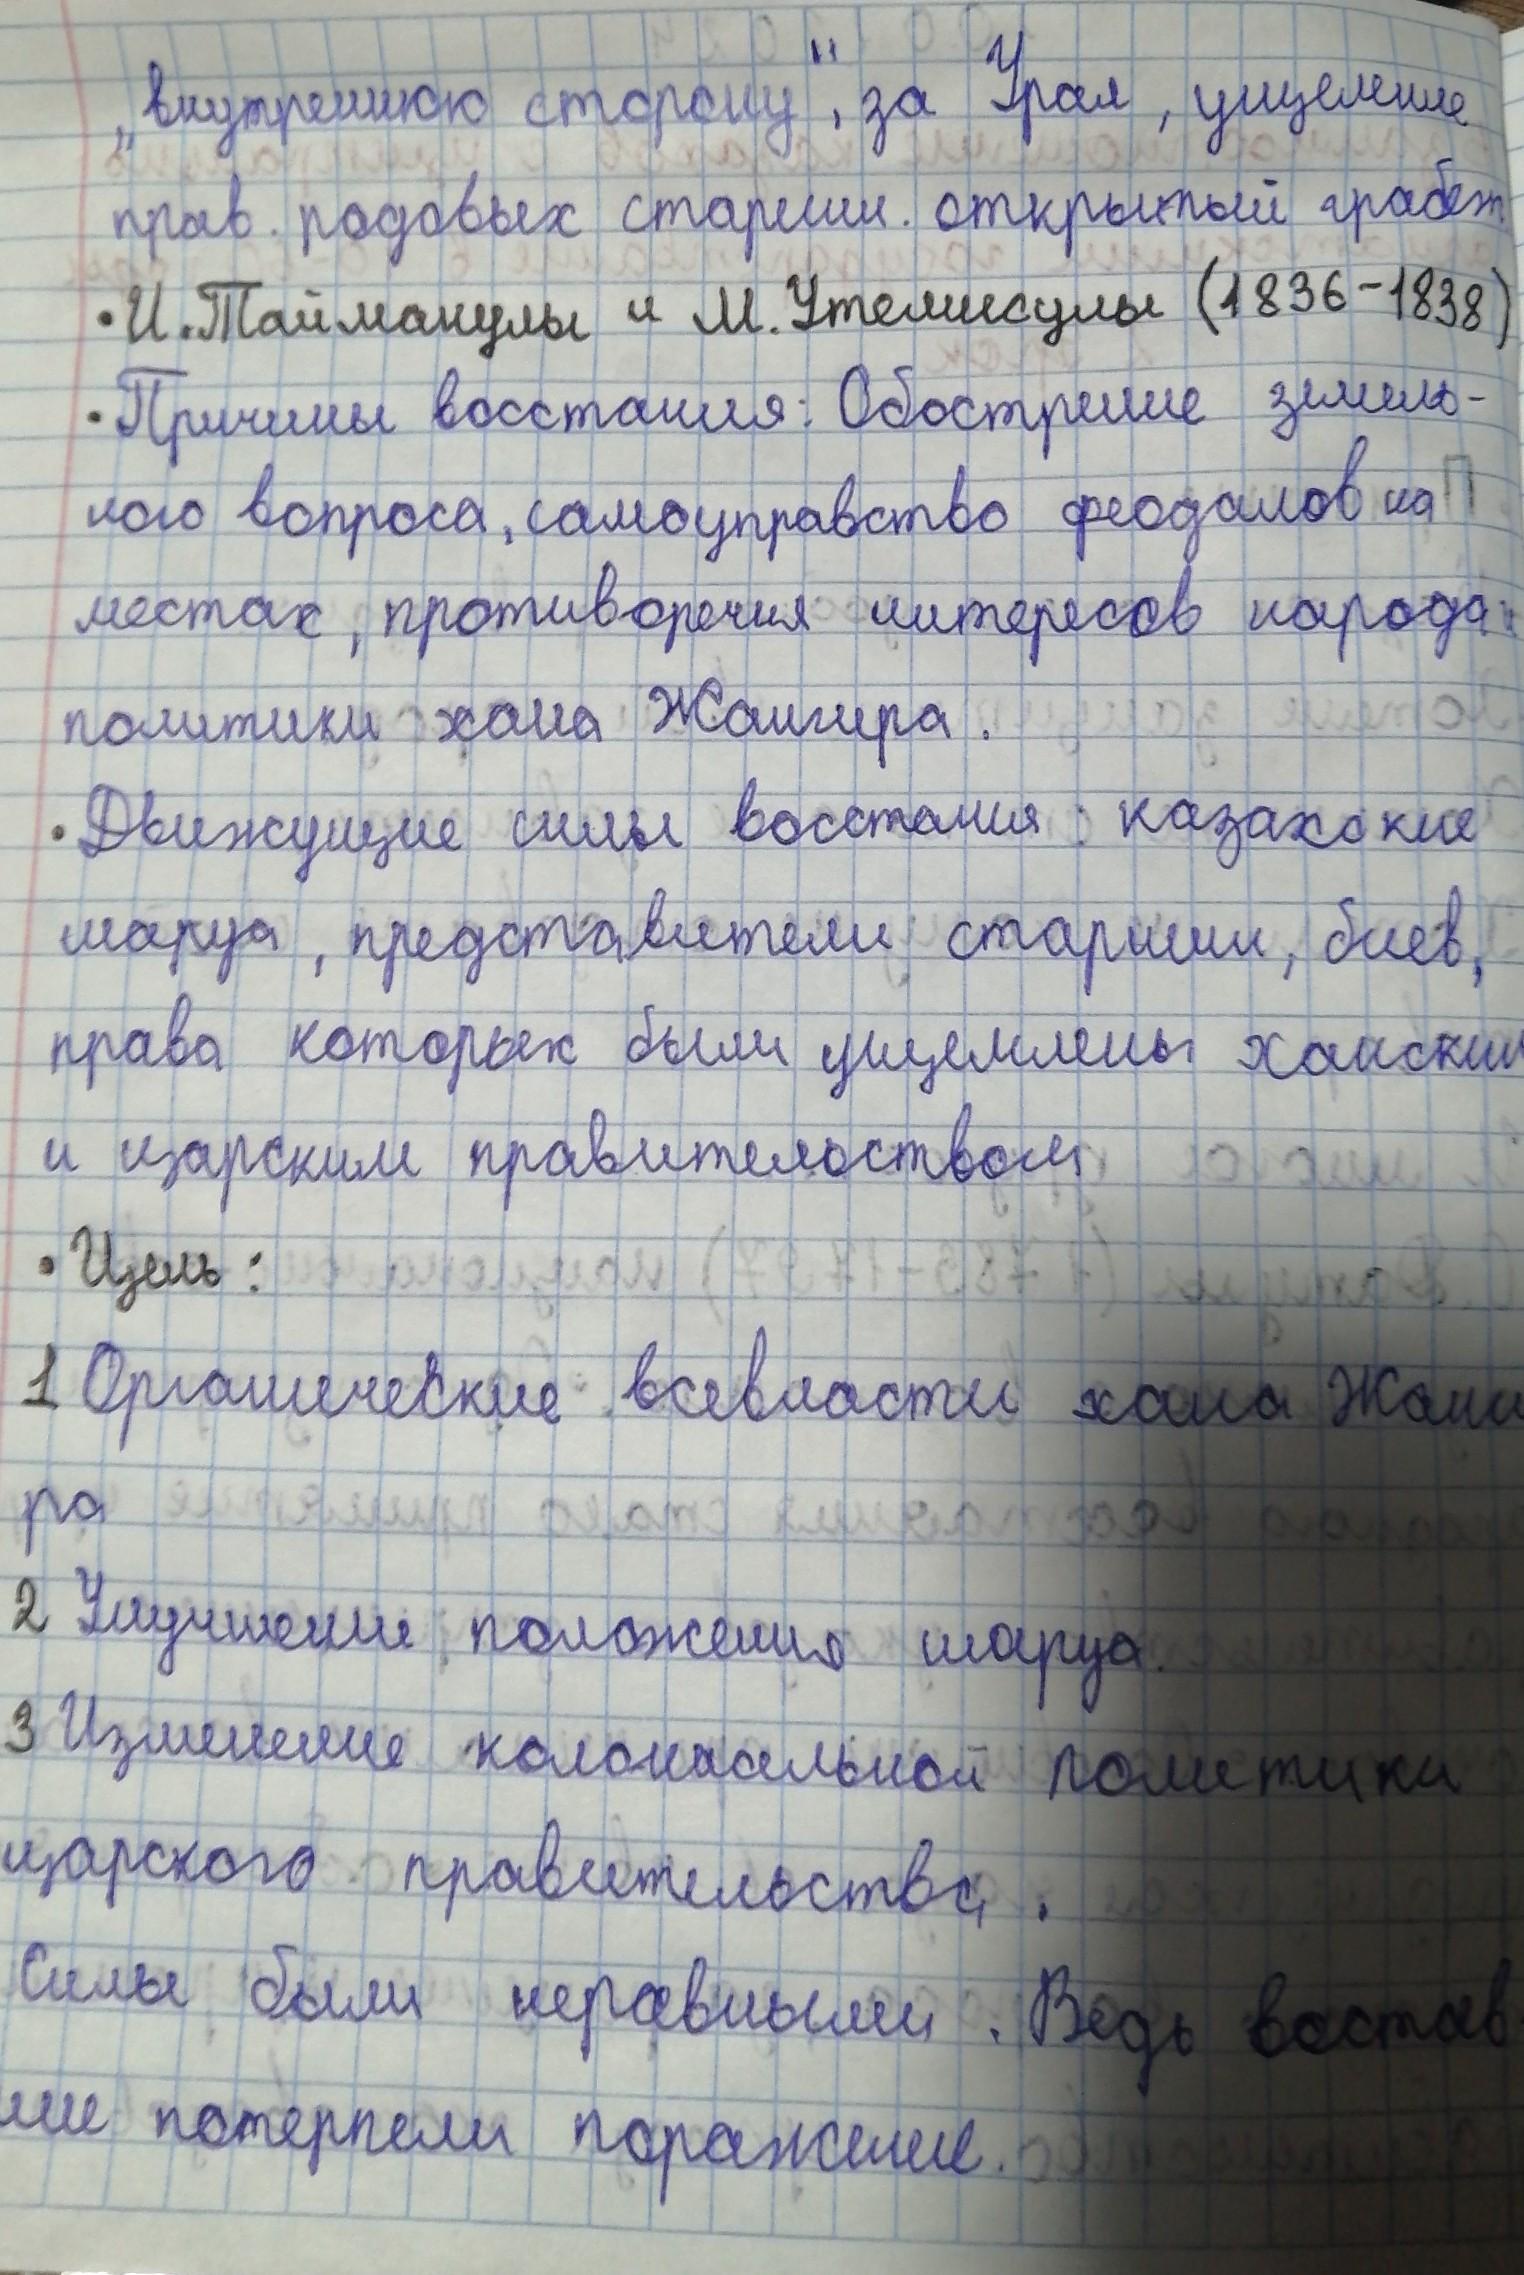 „внутреннюю сторону", за Урал, ущемление
прав родовых старшин. открытый грабеж.
• И. Тайманулы и М. Утемисулы (1836-1838)
• Причины восстания: Обострение земель-
ного вопроса, самоуправство феодалов на
местах, противоречия интересов народа и
политики хана Жангира.
• Движущие силы восстания: казахские
шаруа, представители старшин, биев,
права которых были ущемлены ханским
и царским правительством
• Цель:
1 Органические всевласти хана Жанги
ра
2 Улучшение положения шаруа.
3 Изменение колониальной политики
царского правительства.
Силы были неравными. Ведь востав
шие потерпели поражение.